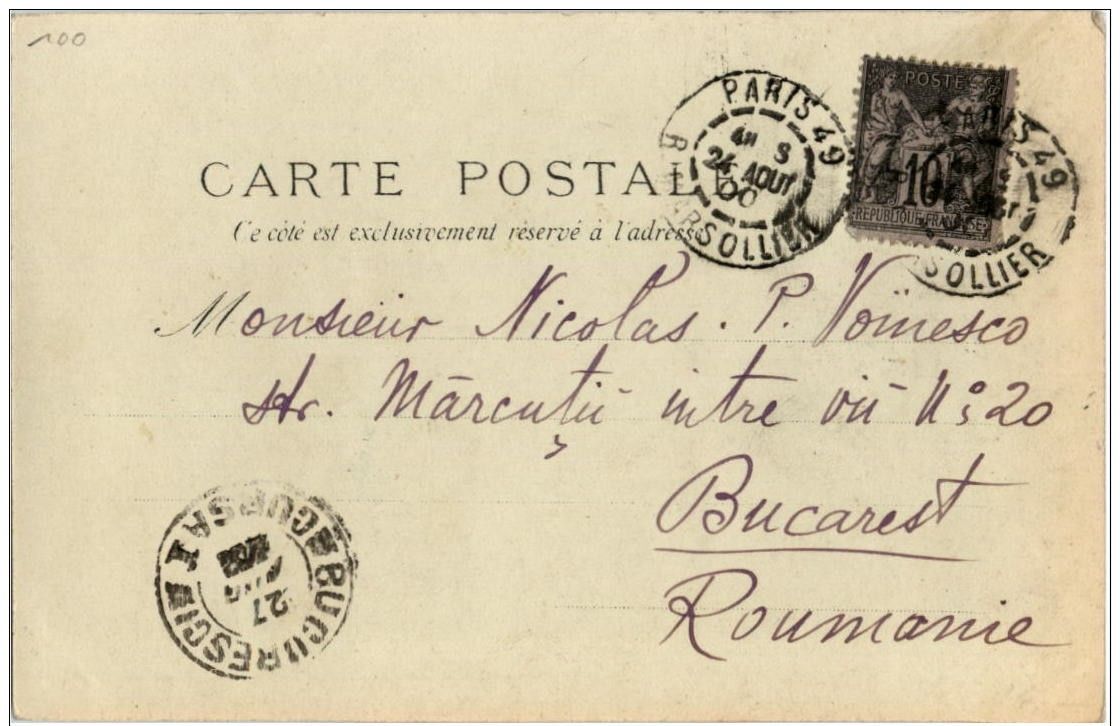 100
PARIS 49
24 AOUT
00
R. MARSOLLIER
POSTES
10
REPUBLIQUE FRANÇAISE
PARIS 49
SOLLIER
CARTE POSTALE
Ce côté est exclusivement réservé à l'adresse
Monsieur Nicolas. P. Voïnesco
str. Mărcuții între vii No 20
Bucarest
Roumanie
BUCURESCI
CURSA I
27